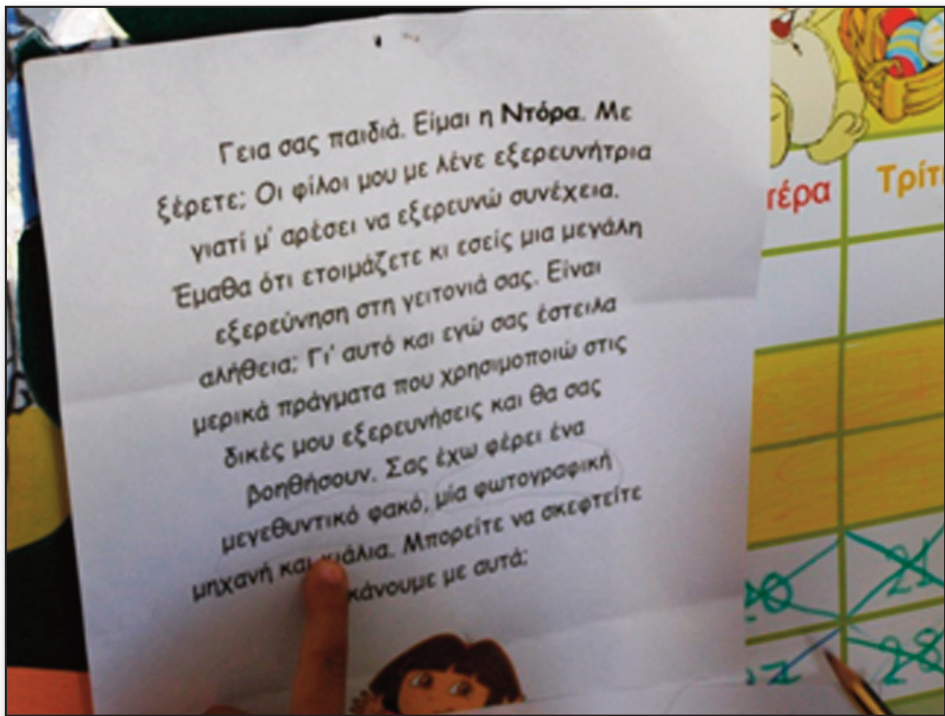 Γεια σας παιδιά. Είμαι η Ντόρα. Με
ξέρετε; Οι φίλοι μου με λένε εξερευνήτρια
γιατί μ' αρέσει να εξερευνώ συνέχεια.
Έμαθα ότι ετοιμάζετε κι εσείς μια μεγάλη
εξερεύνηση στη γειτονιά σας. Είναι
αλήθεια; Γι' αυτό και εγώ σας έστειλα
μερικά πράγματα που χρησιμοποιώ στις
δικές μου εξερευνήσεις και θα σας
βοηθήσουν. Σας έχω φέρει ένα
μεγεθυντικό φακό, μία φωτογραφική
μηχανή και κιάλια. Μπορείτε να σκεφτείτε
κάνουμε με αυτά;
τέρα Τρίτ
20 21
27 28